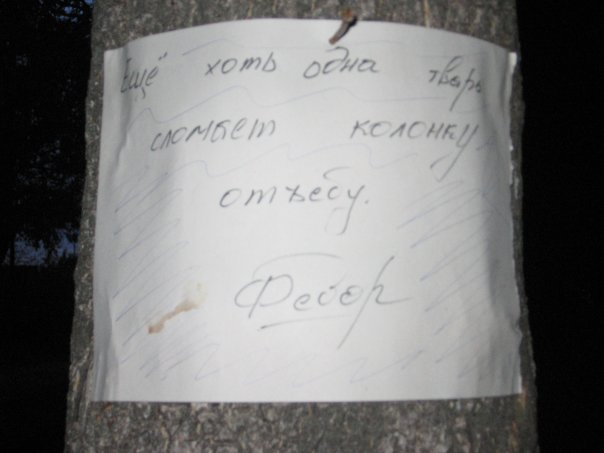 Ещё хоть одна тварь
сломает колонку
отъебу.
Федор